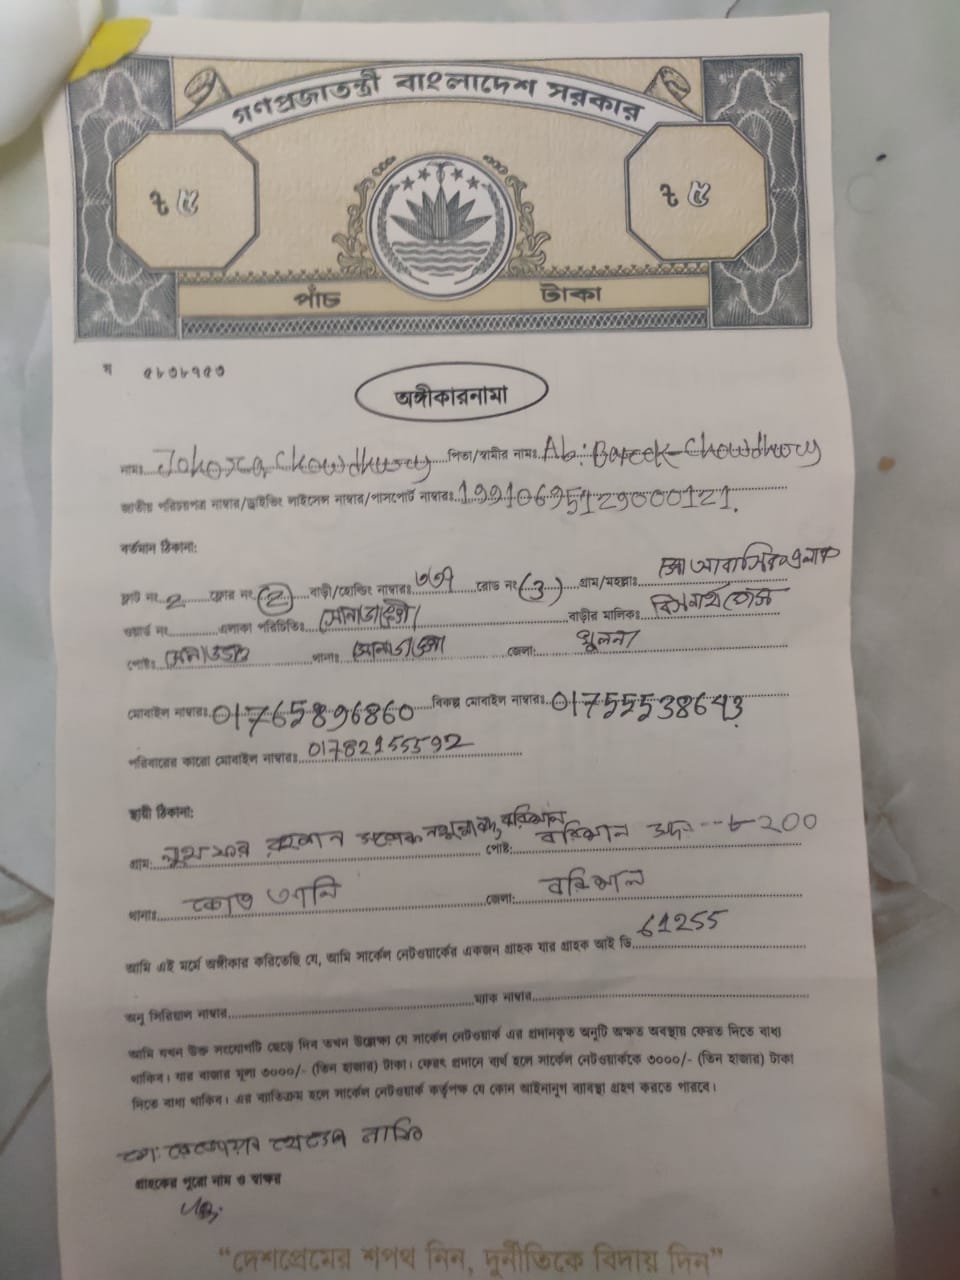 গণপ্রজাতন্ত্রী বাংলাদেশ সরকার
৳ ৫ ৳ ৫
পাঁচ টাকা
ষ ৫৮৩৮৭৫৩
অঙ্গীকারনামা
নামঃ Johora Chowdhury পিতা/স্বামীর নামঃ Ab: Bareek Chowdhury
জাতীয় পরিচয়পত্র নাম্বার/ড্রাইভিং লাইসেন্স নাম্বার/পাসপোর্ট নাম্বারঃ 19910695129000121.
বর্তমান ঠিকানা:
ফ্ল্যাট নং 2 ফ্লোর নং (2) বাড়ী/হোল্ডিং নাম্বারঃ ৩৩৭ রোড নং (3) গ্রাম/মহল্লাঃ আবাসিক
ওয়ার্ড নং এলাকা পরিচিতিঃ সোনাডাঙ্গা বাড়ীর মালিকঃ
পোষ্টঃ থানাঃ সোনাডাঙ্গা জেলা: খুলনা
মোবাইল নাম্বারঃ 01765896860 বিকল্প মোবাইল নাম্বারঃ 01755538643
পরিবারের কারো মোবাইল নাম্বারঃ 01782155592
স্থায়ী ঠিকানা:
গ্রাম: রহমান বরিশাল পোষ্ট: বরিশাল সদর ৮200
থানাঃ জেলা: বরিশাল
আমি এই মর্মে অঙ্গীকার করিতেছি যে, আমি সার্কেল নেটওয়ার্কের একজন গ্রাহক যার গ্রাহক আই ডি 61255
অনু সিরিয়াল নাম্বার ম্যাক নাম্বার
আমি যখন উক্ত সংযোগটি ছেড়ে দিব তখন উল্লেখ্য যে সার্কেল নেটওয়ার্ক এর প্রদানকৃত অনুটি অক্ষত অবস্থায় ফেরত দিতে বাধ্য
থাকিব। যার বাজার মূল্য ৩০০০/- (তিন হাজার) টাকা। ফেরৎ প্রদানে ব্যর্থ হলে সার্কেল নেটওয়ার্ককে ৩০০০/- (তিন হাজার) টাকা
দিতে বাধ্য থাকিব। এর ব্যতিক্রম হলে সার্কেল নেটওয়ার্ক কর্তৃপক্ষ যে কোন আইনানুগ ব্যবস্থা গ্রহণ করতে পারবে।
গ্রাহকের পুরো নাম ও স্বাক্ষর
“দেশপ্রেমের শপথ নিন, দুর্নীতিকে বিদায় দিন”